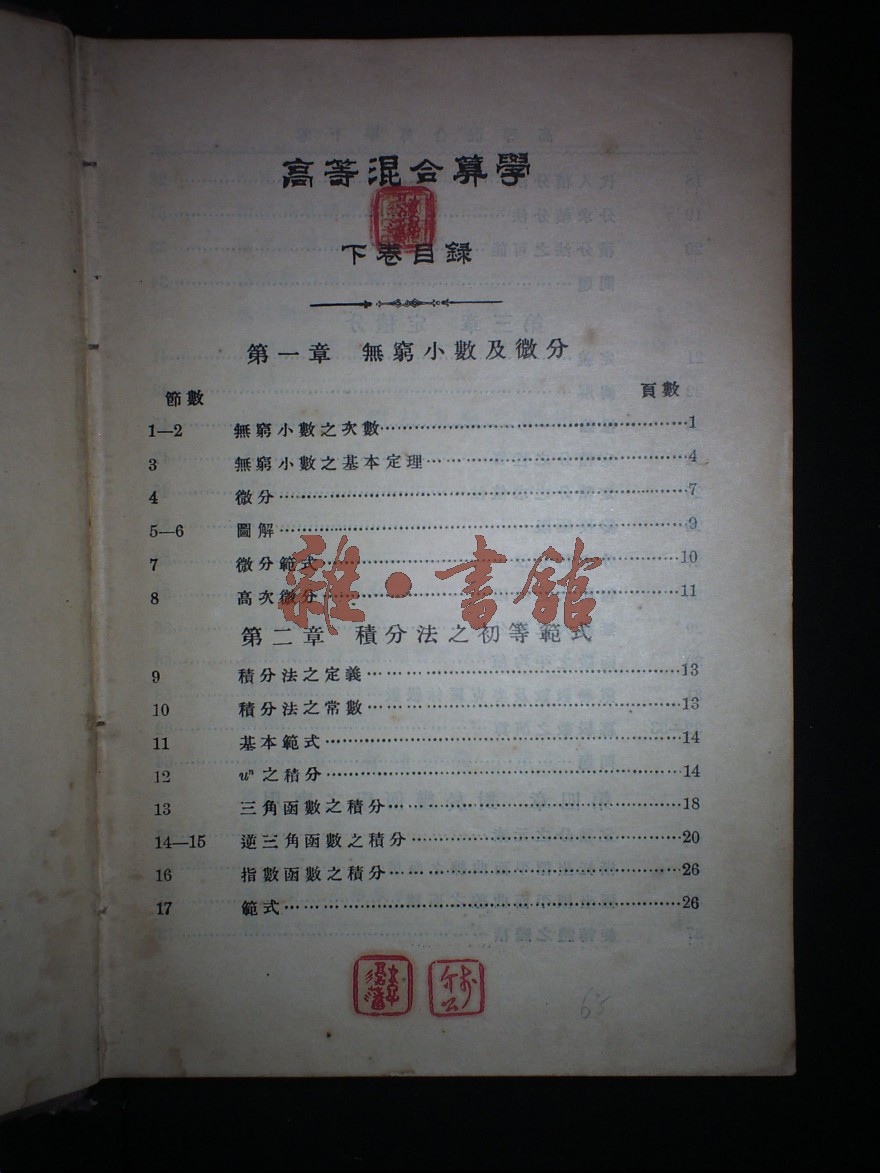 高等混合算學
下卷目錄
第一章 無窮小數及微分
節數 頁數
1—2 無窮小數之次數 1
3 無窮小數之基本定理 4
4 微分 7
5—6 圖解 9
7 微分範式 10
8 高次微分 11
雜·書館
第二章 積分法之初等範式
9 積分法之定義 13
10 積分法之常數 13
11 基本範式 14
12 uⁿ之積分 14
13 三角函數之積分 18
14—15 逆三角函數之積分 20
16 指數函數之積分 26
17 範式 26
65